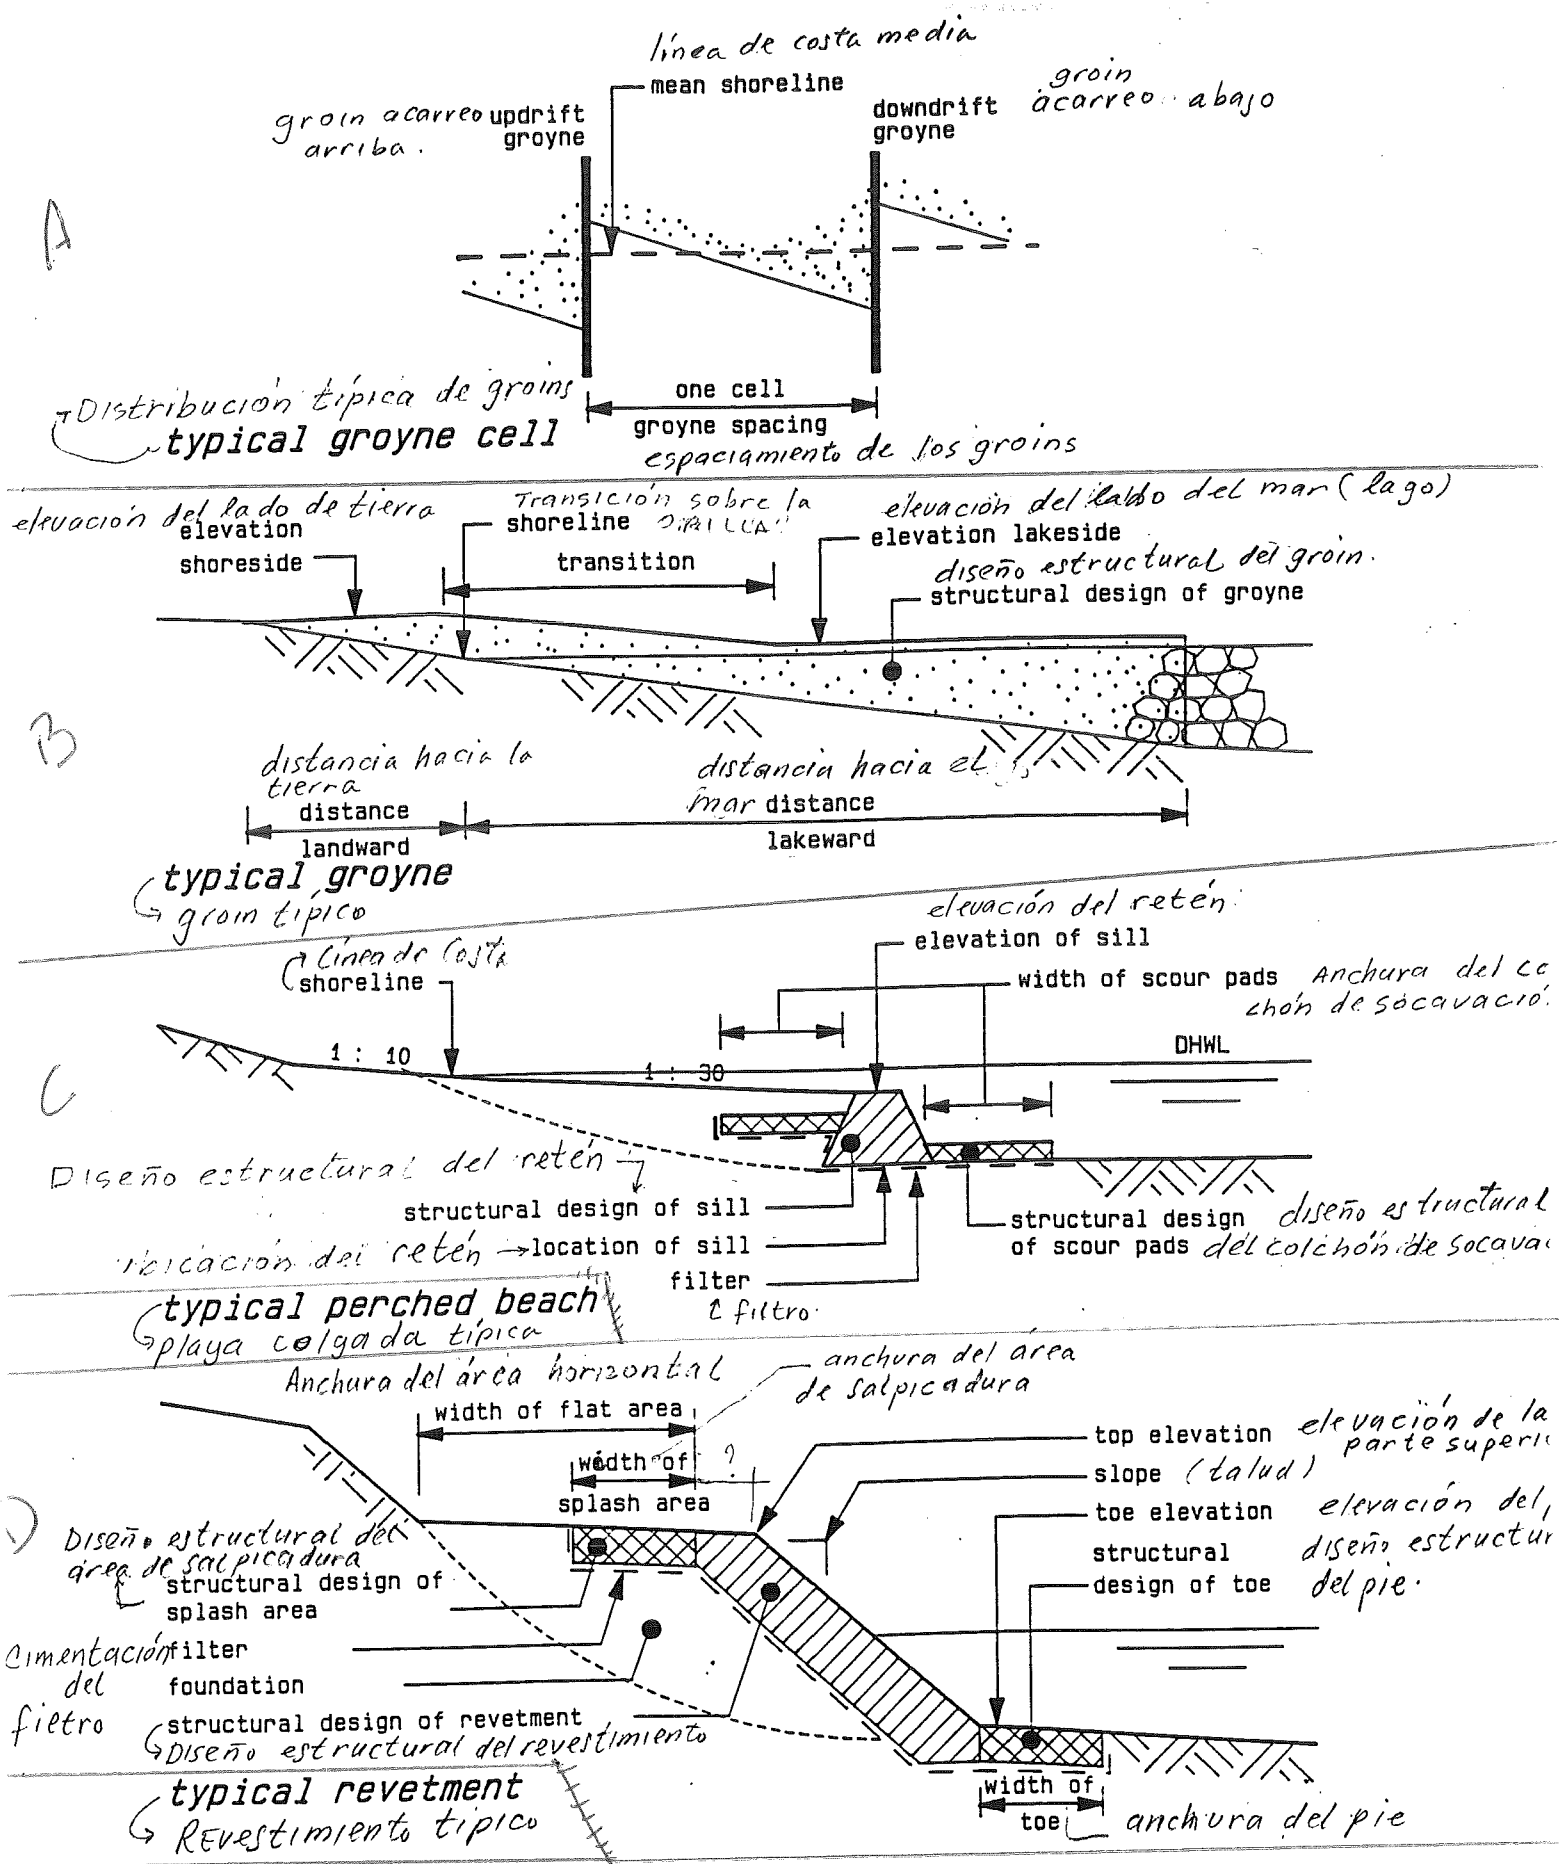 línea de costa media
mean shoreline
groin acarreo
arriba.
updrift
groyne
downdrift
groyne
groin
acarreo abajo
A
Distribución típica de groins
typical groyne cell
one cell
groyne spacing
espaciamiento de los groins
elevación del lado de tierra
elevation
shoreside
Transición sobre la
shoreline
transition
elevación del lado del mar (lago)
elevation lakeside
diseño estructural del groin.
structural design of groyne
B
distancia hacia la
tierra
distance
landward
distancia hacia el
mar distance
lakeward
typical groyne
groin típico
Línea de Costa
shoreline
elevación del retén
elevation of sill
width of scour pads
Anchura del co
chón de socavació
DHWL
1 : 10
1 : 30
C
Diseño estructural del retén
structural design of sill
ubicación del retén
location of sill
filter
filtro
structural design
of scour pads
diseño estructural
del colchón de socava
typical perched beach
playa colgada típica
Anchura del área horizontal
width of flat area
anchura del área
de salpicadura
width of
splash area
?
top elevation
elevación de la
parte superi
slope (talud)
toe elevation
elevación del
structural
design of toe
diseño estructur
del pie.
D
Diseño estructural del
área de salpicadura
structural design of
splash area
Cimentación
del
filtro
filter
foundation
structural design of revetment
Diseño estructural del revestimiento
typical revetment
Revestimiento típico
width of
toe
anchura del pie